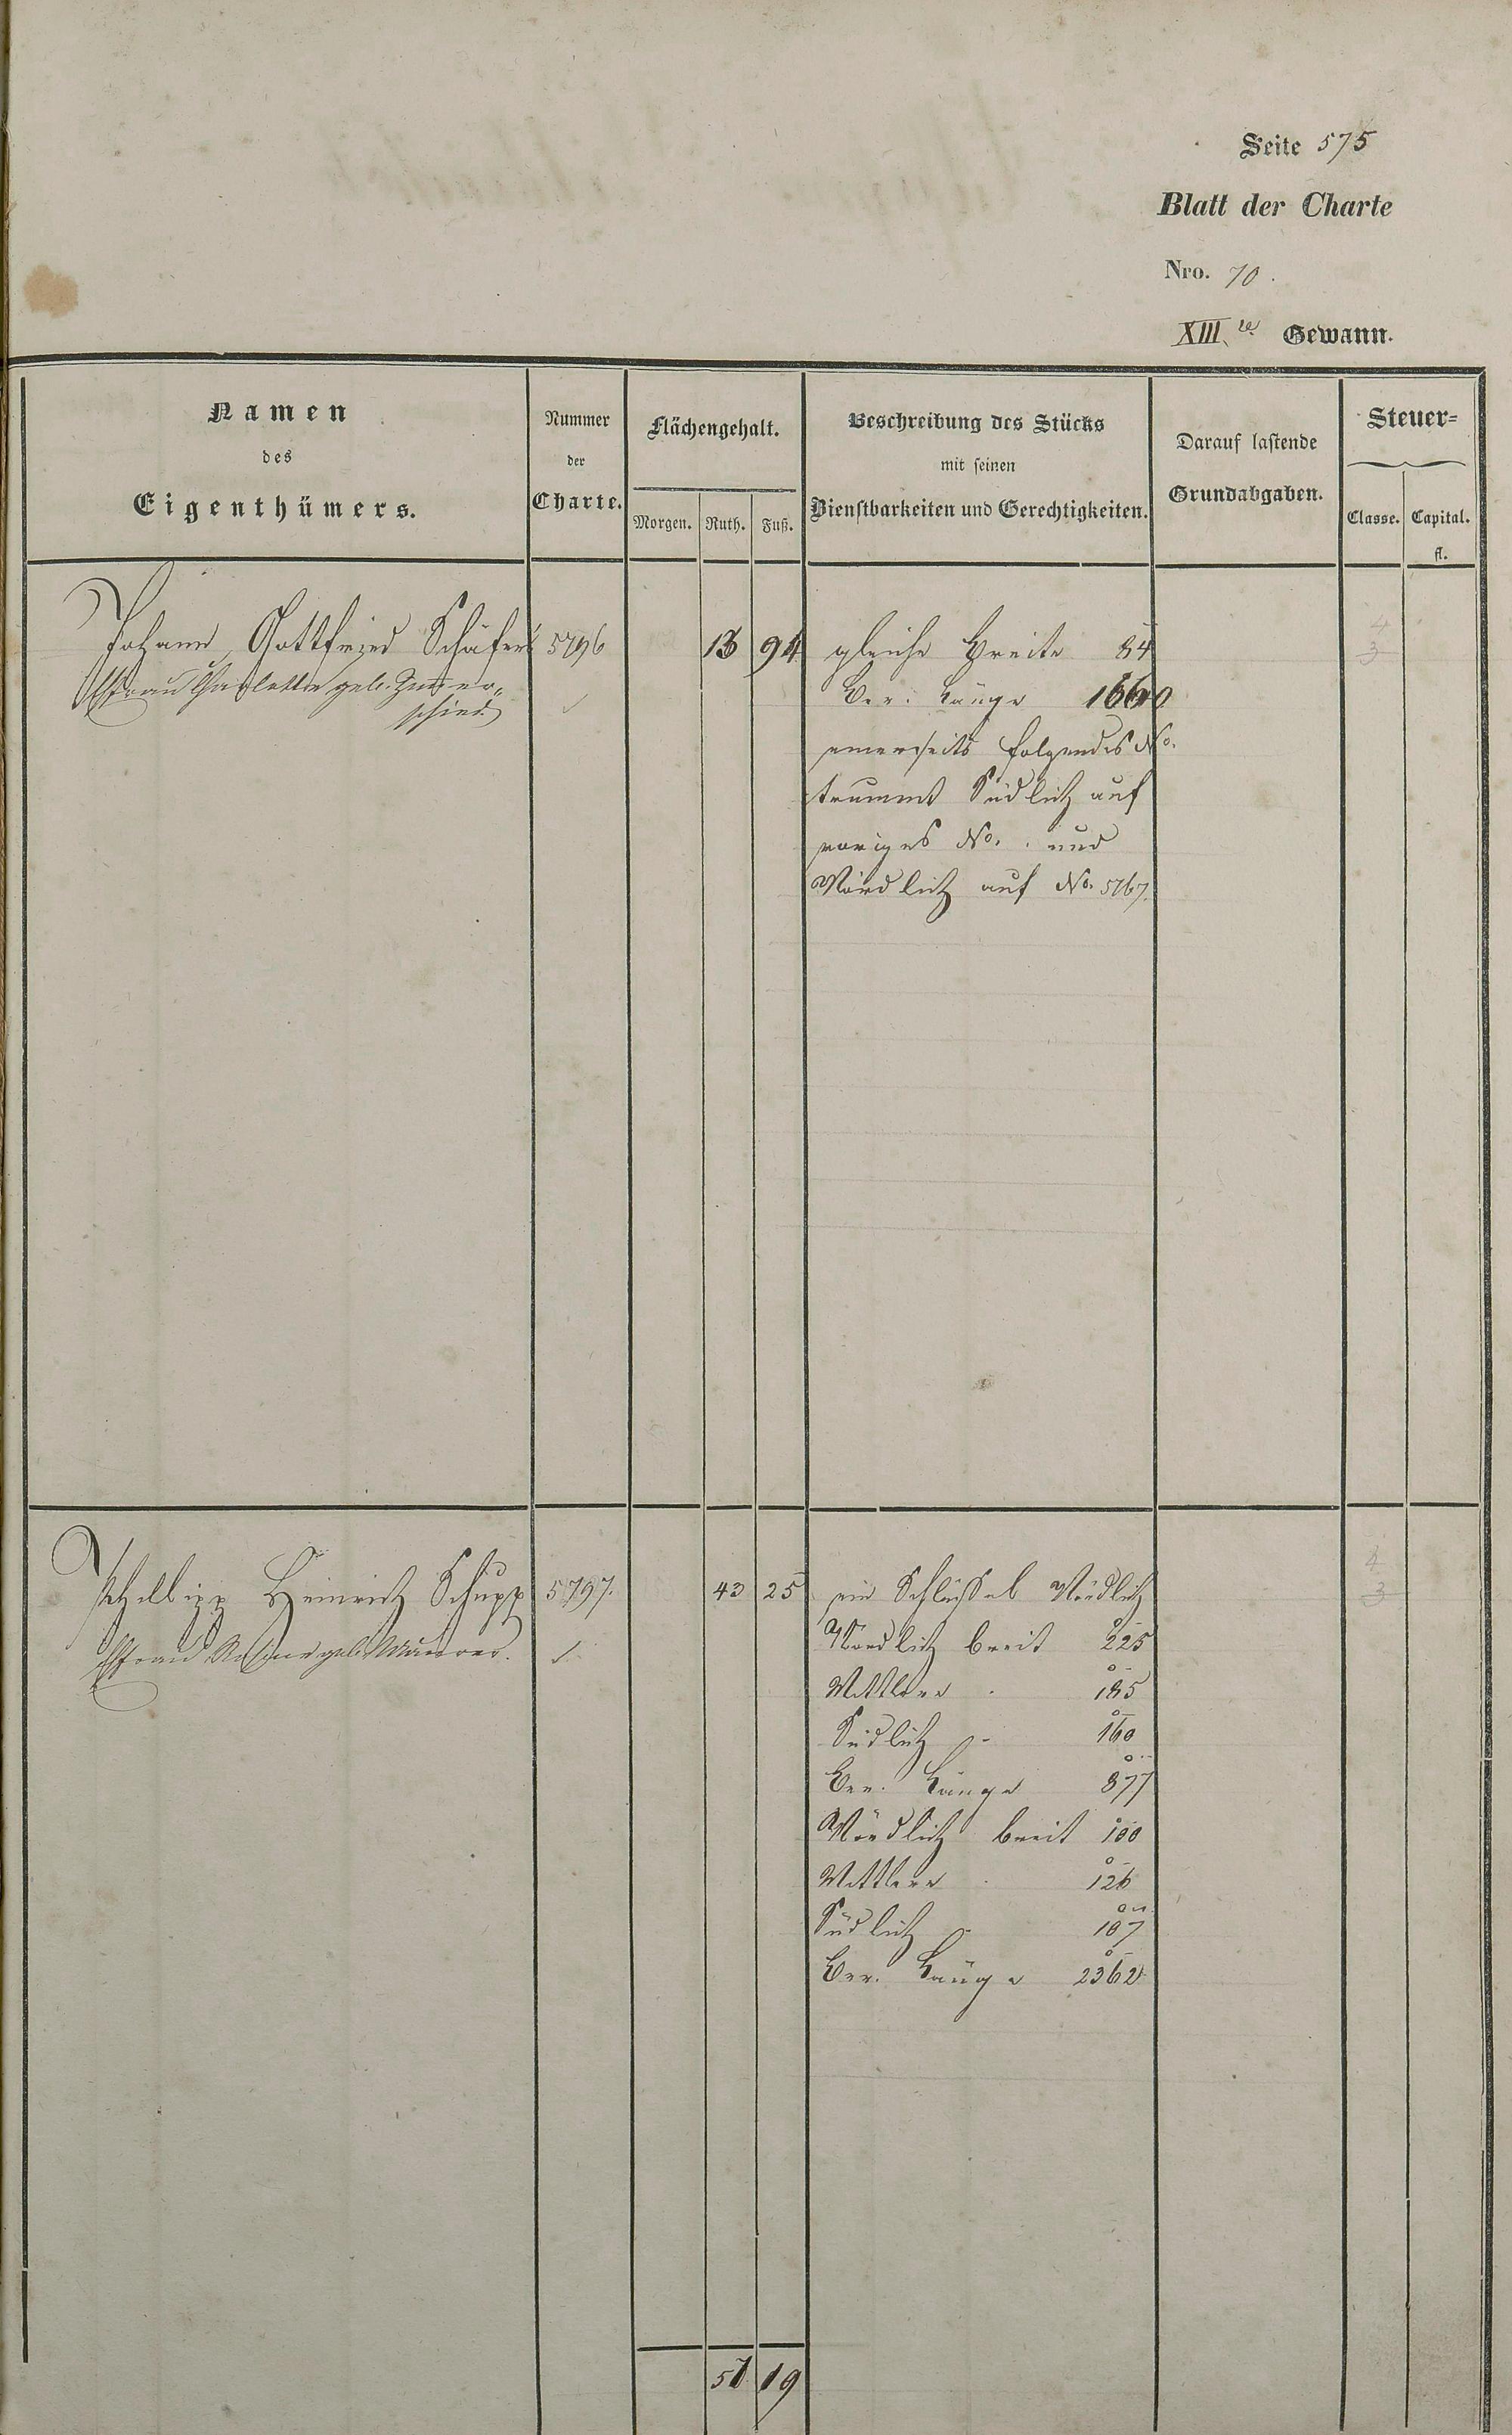 Seite 575
Blatt der Charte
Nro. 70.
XIII.te Gewann.
Namen
des
Eigenthümers.
Nummer
der
Charte.
Flächengehalt.
Morgen. Ruth. Fuß.
Beschreibung des Stücks
mit seinen
Dienstbarkeiten und Gerechtigkeiten.
Darauf lastende
Grundabgaben.
Steuer-
Classe. Capital.
fl.
Johann Gottfried Schäfer 5796 13 94 gleiche Breite 84 4
Ehefrau Charlotte geb. 3
schied ✓ Ber. Länge 1660
einerseits folgendes No.
Südlich auf
voriges No. und
Nördlich auf No. 5767.
Philipp Heinrich Schupp 5797. 43 25 ein Schlüssel Nördlich 4
Ehefrau geb. Maurer. ✓ Nördlich breit 225 3
Mittlere 185
Südlich 160
Ber. Länge 877
Nördlich breit 100
Mittlere 126
Südlich 107
Ber. Länge 2362
57 19